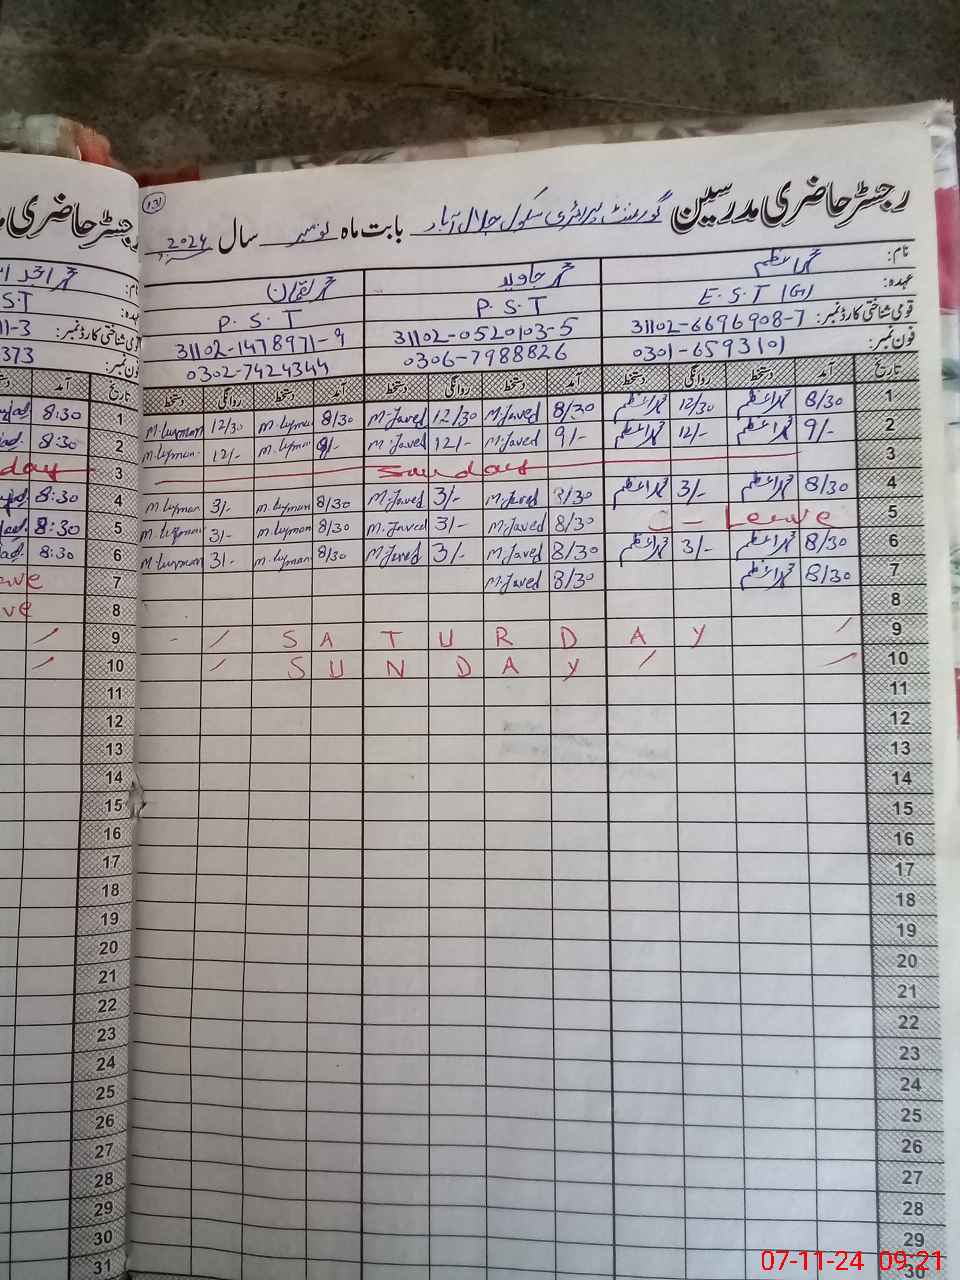 رجسٹر حاضری مدرسین گورنمنٹ پرائمری سکول جلال آباد بابت ماہ نومبر سال 2024
نام: محمد اعظم محمد جاوید محمد لقمان
عہدہ: E.S.T (G) P.S.T P.S.T
قومی شناختی کارڈ نمبر: 31102-6696908-7 31102-0520103-5 31102-1478971-9
فون نمبر: 0301-6593101 0306-7988826 0302-7424344
تاریخ آمد دستخط روانگی دستخط آمد دستخط روانگی دستخط آمد دستخط روانگی دستخط
1 8/30 محمد اعظم 12/30 محمد اعظم 8/30 M.Javed 12/30 M.Javed 8/30 M.Luqman 12/30 M.Luqman
2 9/- محمد اعظم 12/- محمد اعظم 9/- M.Javed 12/- M.Javed 9/- M.Luqman 12/- M.Luqman
3 Sunday
4 8/30 محمد اعظم 3/- محمد اعظم 8/30 M.Javed 3/- M.Javed 8/30 M.Luqman 3/- M.Luqman
5 Leave 8/30 M.Javed 3/- M.Javed 8/30 M.Luqman 3/- M.Luqman
6 8/30 محمد اعظم 3/- محمد اعظم 8/30 M.Javed 3/- M.Javed 8/30 M.Luqman 3/- M.Luqman
7 8/30 محمد اعظم 8/30 M.Javed
8
9 SATURDAY
10 SUNDAY
11
12
13
14
15
16
17
18
19
20
21
22
23
24
25
26
27
28
29
30
رجسٹر حاضری
نام: محمد
عہدہ: S.T
11-3
فون نمبر: 373
تاریخ آمد
1 8:30
2 8:30
3 day
4 8:30
5 8:30
6 8:30
7
8
9
10
11
12
13
14
15
16
17
18
19
20
21
22
23
24
25
26
27
28
29
30
31
07-11-24 09:21